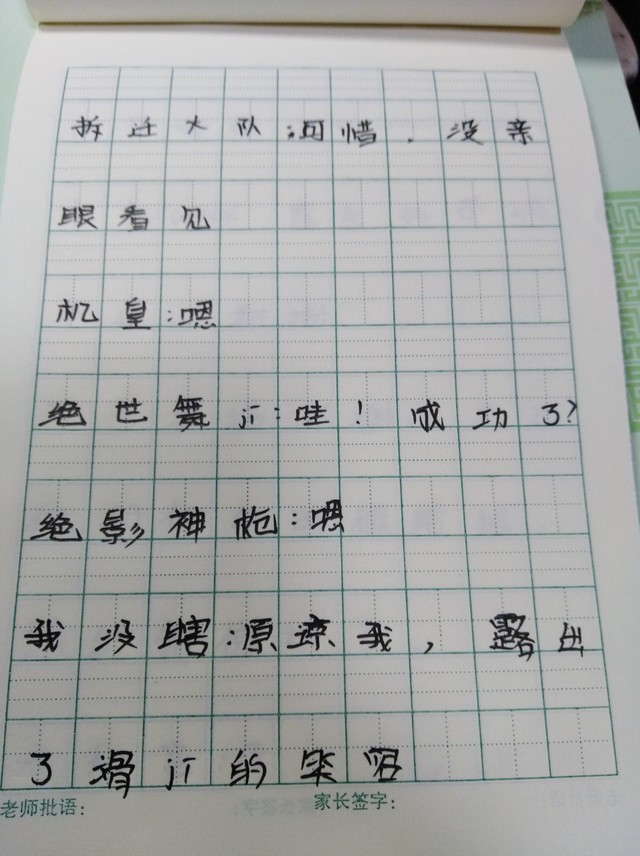 拆迁大队:可惜.没亲
眼看见
机皇:嗯
绝世舞jī:哇!成功了?
绝影神枪:嗯
我没瞎:原谅我,露出
了滑jī的笑容
老师批语: 家长签字: